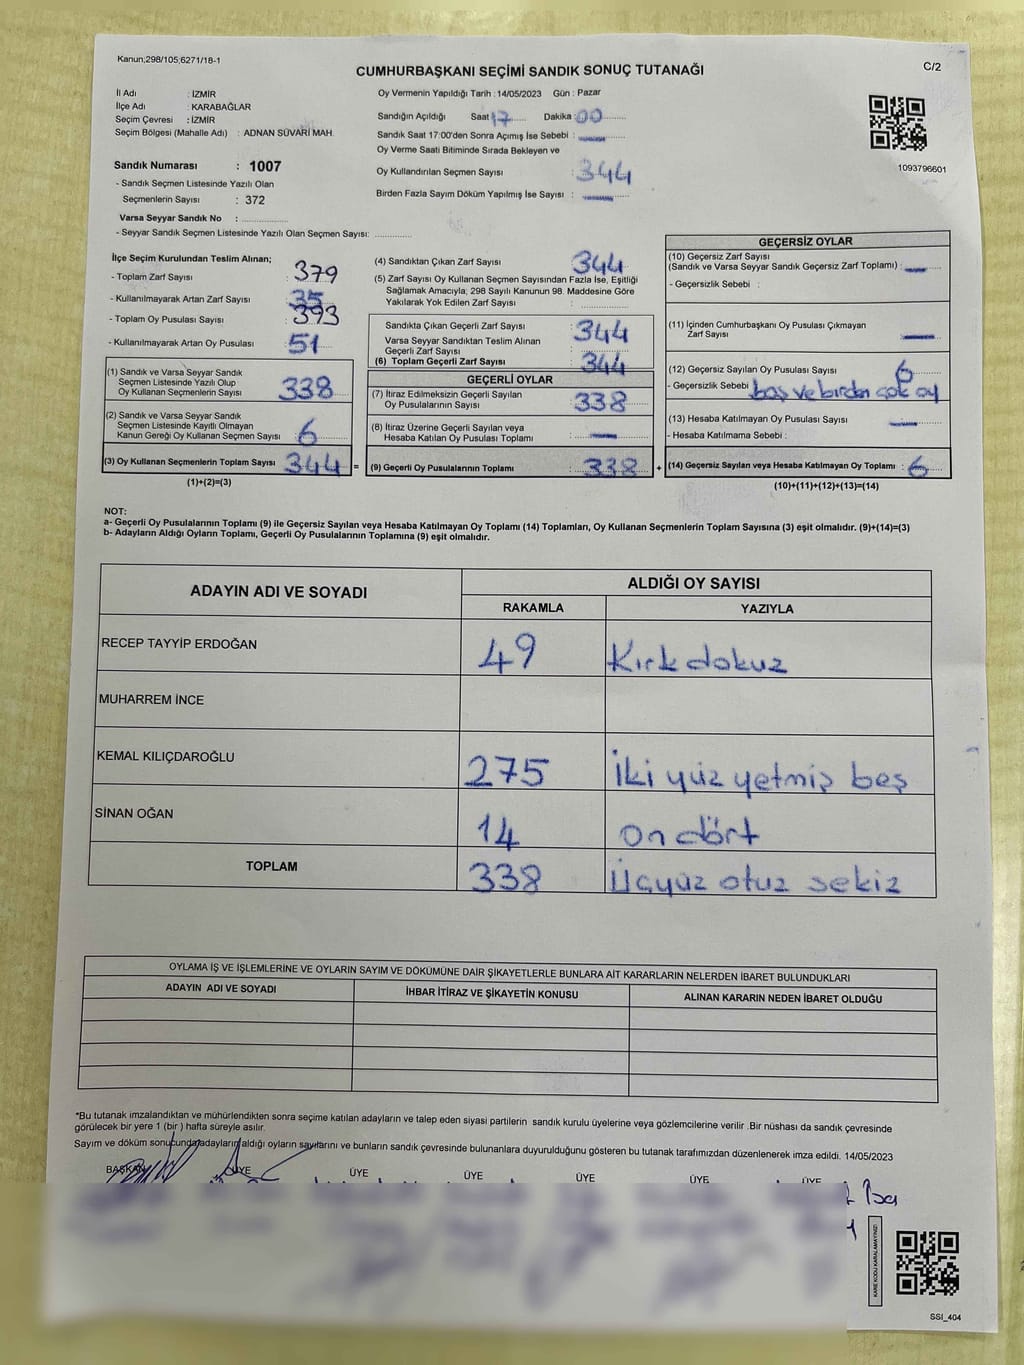 Kanun;298/105;6271/18-1
C/2
CUMHURBAŞKANI SEÇİMİ SANDIK SONUÇ TUTANAĞI
İl Adı : İZMİR
İlçe Adı : KARABAĞLAR
Seçim Çevresi : İZMİR
Seçim Bölgesi (Mahalle Adı) : ADNAN SÜVARİ MAH.
Oy Vermenin Yapıldığı Tarih : 14/05/2023 Gün : Pazar
Sandığın Açıldığı Saat 17 Dakika : 00
Sandık Saat 17:00'den Sonra Açımış İse Sebebi :
Oy Verme Saati Bitiminde Sırada Bekleyen ve
Oy Kullandırılan Seçmen Sayısı : 344
Birden Fazla Sayım Döküm Yapılmış İse Sayısı :
1093796601
Sandık Numarası : 1007
- Sandık Seçmen Listesinde Yazılı Olan
Seçmenlerin Sayısı : 372
Varsa Seyyar Sandık No :
- Seyyar Sandık Seçmen Listesinde Yazılı Olan Seçmen Sayısı:
İlçe Seçim Kurulundan Teslim Alınan;
- Toplam Zarf Sayısı : 379
- Kullanılmayarak Artan Zarf Sayısı : 35
- Toplam Oy Pusulası Sayısı : 393
- Kullanılmayarak Artan Oy Pusulası : 51
(1) Sandık ve Varsa Seyyar Sandık
Seçmen Listesinde Yazılı Olup
Oy Kullanan Seçmenlerin Sayısı : 338
(2) Sandık ve Varsa Seyyar Sandık
Seçmen Listesinde Kayıtlı Olmayan
Kanun Gereği Oy Kullanan Seçmen Sayısı : 6
(3) Oy Kullanan Seçmenlerin Toplam Sayısı : 344 =
(1)+(2)=(3)
(4) Sandıktan Çıkan Zarf Sayısı : 344
(5) Zarf Sayısı Oy Kullanan Seçmen Sayısından Fazla İse, Eşitliği
Sağlamak Amacıyla, 298 Sayılı Kanunun 98. Maddesine Göre
Yakılarak Yok Edilen Zarf Sayısı :
Sandıkta Çıkan Geçerli Zarf Sayısı : 344
Varsa Seyyar Sandıktan Teslim Alınan
Geçerli Zarf Sayısı :
(6) Toplam Geçerli Zarf Sayısı : 344
GEÇERLİ OYLAR
(7) İtiraz Edilmeksizin Geçerli Sayılan
Oy Pusulalarının Sayısı : 338
(8) İtiraz Üzerine Geçerli Sayılan veya
Hesaba Katılan Oy Pusulası Toplamı :
(9) Geçerli Oy Pusulalarının Toplamı : 338 +
GEÇERSİZ OYLAR
(10) Geçersiz Zarf Sayısı
(Sandık ve Varsa Seyyar Sandık Geçersiz Zarf Toplamı) :
- Geçersizlik Sebebi :
(11) İçinden Cumhurbaşkanı Oy Pusulası Çıkmayan
Zarf Sayısı :
(12) Geçersiz Sayılan Oy Pusulası Sayısı : 6
- Geçersizlik Sebebi : boş ve birden çok oy
(13) Hesaba Katılmayan Oy Pusulası Sayısı :
- Hesaba Katılmama Sebebi :
(14) Geçersiz Sayılan veya Hesaba Katılmayan Oy Toplamı : 6
(10)+(11)+(12)+(13)=(14)
NOT:
a- Geçerli Oy Pusulalarının Toplamı (9) ile Geçersiz Sayılan veya Hesaba Katılmayan Oy Toplamı (14) Toplamları, Oy Kullanan Seçmenlerin Toplam Sayısına (3) eşit olmalıdır. (9)+(14)=(3)
b- Adayların Aldığı Oyların Toplamı, Geçerli Oy Pusulalarının Toplamına (9) eşit olmalıdır.
ADAYIN ADI VE SOYADI ALDIĞI OY SAYISI
RAKAMLA YAZIYLA
RECEP TAYYİP ERDOĞAN 49 Kırk dokuz
MUHARREM İNCE
KEMAL KILIÇDAROĞLU 275 İki yüz yetmiş beş
SİNAN OĞAN 14 on dört
TOPLAM 338 Üçyüz otuz sekiz
OYLAMA İŞ VE İŞLEMLERİNE VE OYLARIN SAYIM VE DÖKÜMÜNE DAİR ŞİKAYETLERLE BUNLARA AİT KARARLARIN NELERDEN İBARET BULUNDUKLARI
ADAYIN ADI VE SOYADI İHBAR İTİRAZ VE ŞİKAYETİN KONUSU ALINAN KARARIN NEDEN İBARET OLDUĞU
*Bu tutanak imzalandıktan ve mühürlendikten sonra seçime katılan adayların ve talep eden siyasi partilerin sandık kurulu üyelerine veya gözlemcilerine verilir .Bir nüshası da sandık çevresinde
görülecek bir yere 1 (bir ) hafta süreyle asılır.
Sayım ve döküm sonucunda adayların aldığı oyların sayılarını ve bunların sandık çevresinde bulunanlara duyurulduğunu gösteren bu tutanak tarafımızdan düzenlenerek imza edildi. 14/05/2023
BAŞKAN ÜYE ÜYE ÜYE ÜYE ÜYE ÜYE
KARE KODU KARALAMAYINIZ!
SSI_404